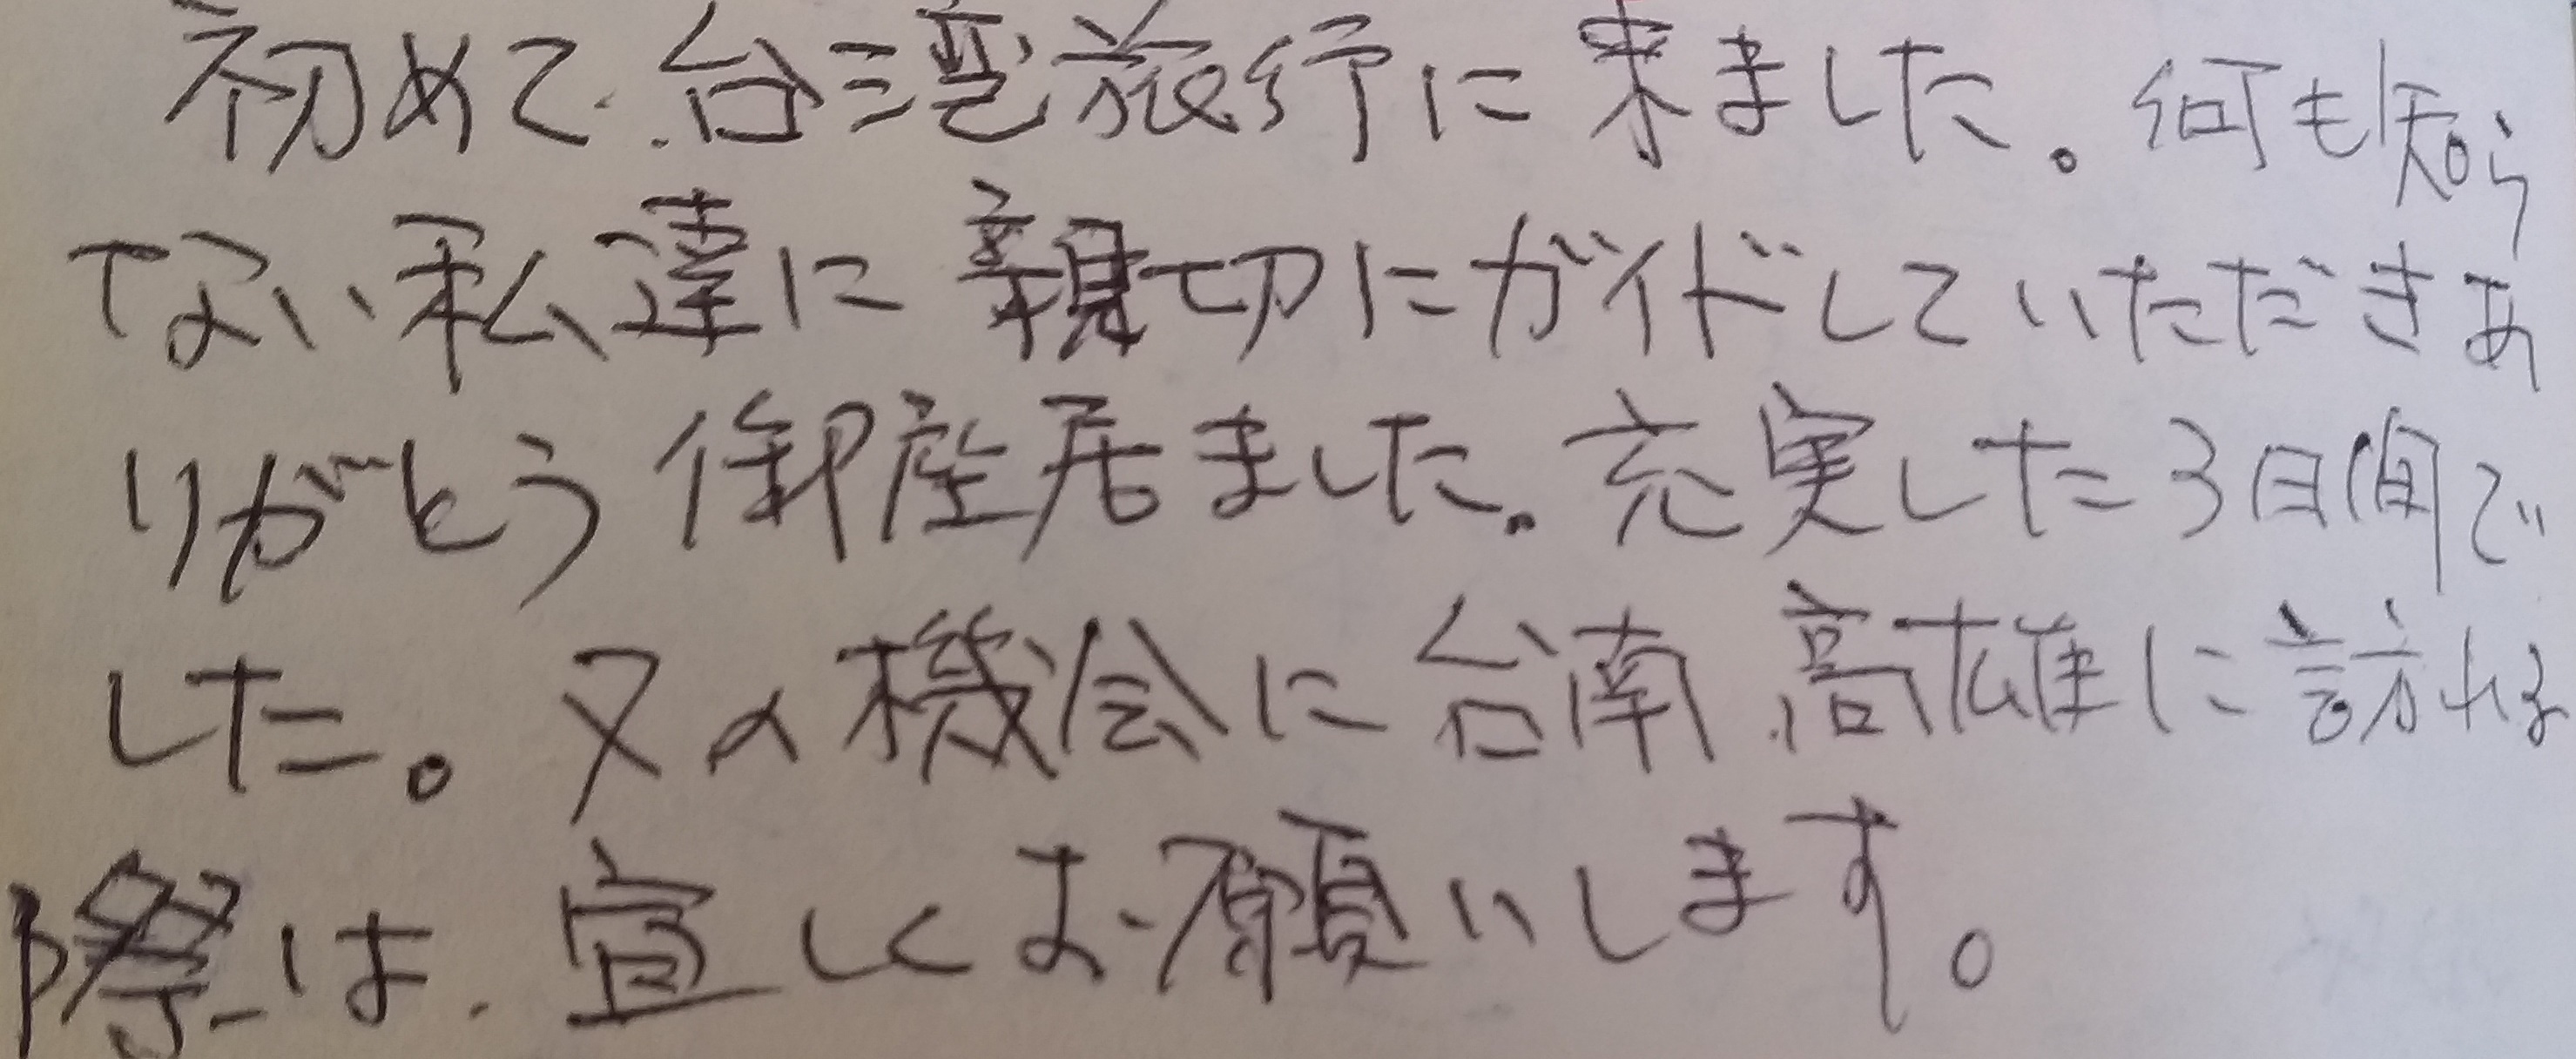 初めて台湾旅行に来ました。何も知ら
ない私達に親切にガイドしていただきあ
りがとう御座居ました。充実した3日間で
した。又の機会に台南、高雄に訪れる
際は、宜しくお願いします。